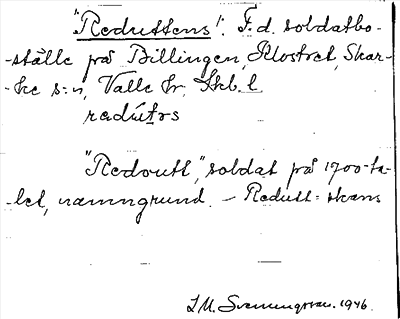 "Reduttens". F.d. soldatbo-
-ställe på Billingen, Klostret, Skar-
-ke s:n, Valle hr, Skb. l.
redútss
"Redoutt," soldat på 1700-ta-
-let, namngrund. - Redutt = skans
S.M. Svenungsson. 1946.